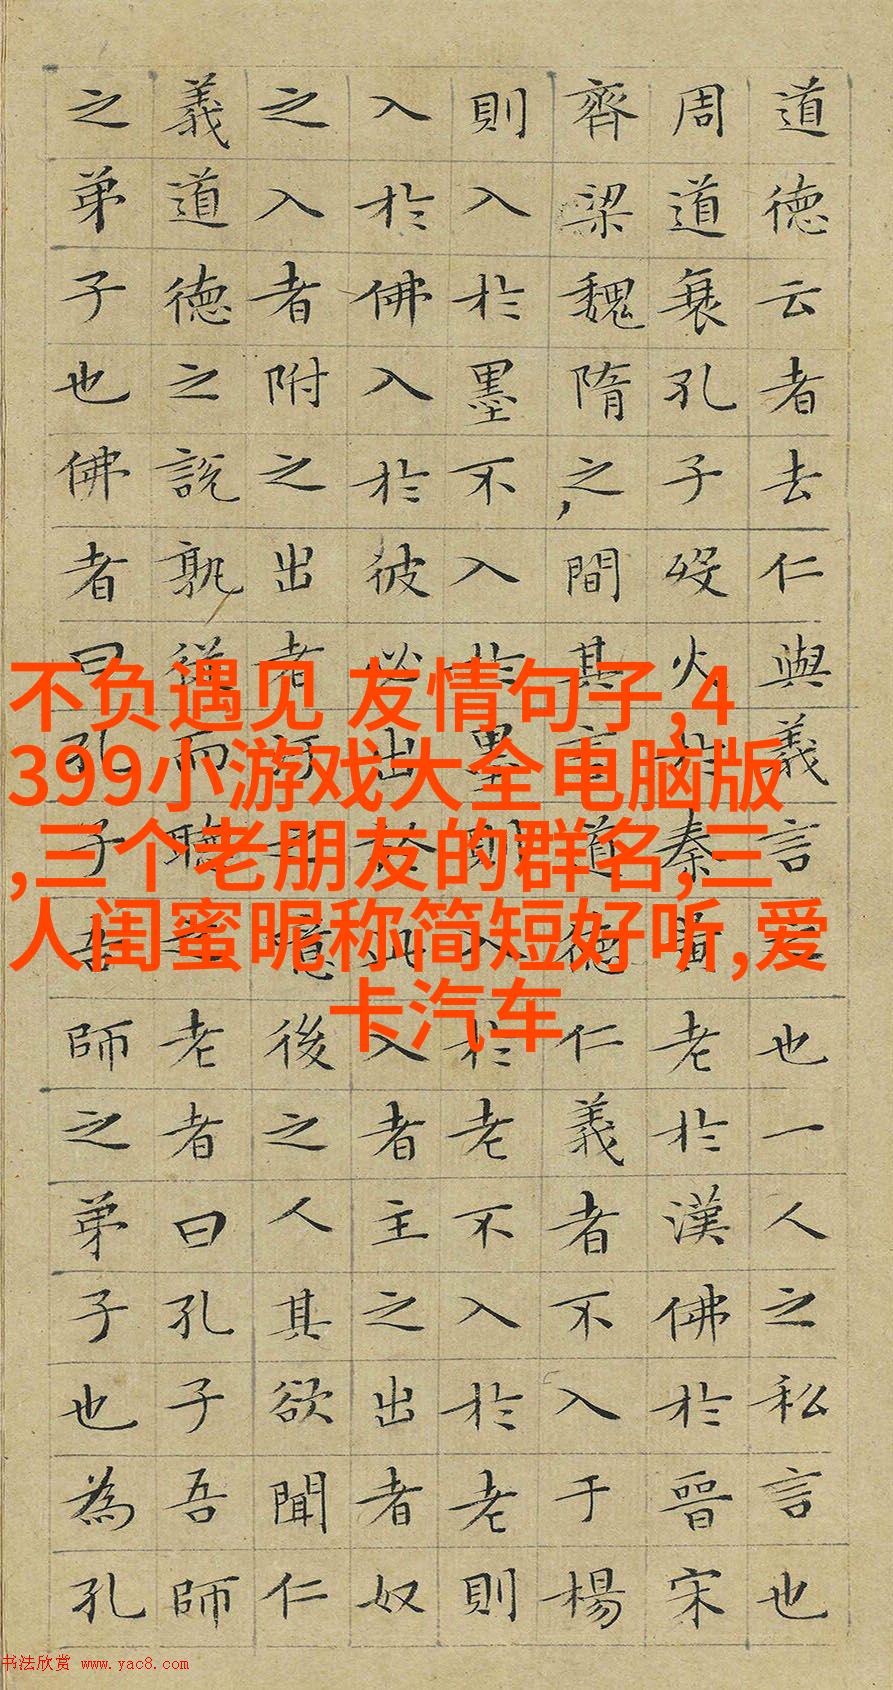 道德云者去仁與義言之也一人之私言也
周道衰孔子歿火於秦黃老於漢佛於晉宋
齊梁魏隋之間其言道德仁義者不入于楊
則入於墨不入於墨則入於老不入於老則
入於佛入於彼必出於此入者主之出者奴
之入者附之出者汙之噫後之人其欲聞仁
義道德之說孰從而聽之老者曰孔子吾師
之弟子也佛者曰孔子吾師之弟子也為孔
不负遇见 友情句子,4
399小游戏大全电脑版
,三个老朋友的群名,三
人闺蜜昵称简短好听,爱
卡汽车
书法欣赏 www.yac8.com